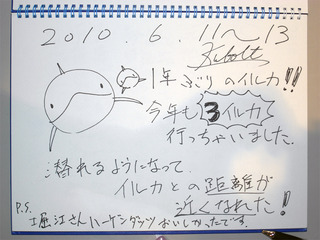 2010.6.11〜13
1年ぶりのイルカ!!
今年も3イルカ
行っちゃいました.
潜れるようになって.
イルカとの距離が
近くなれた!
P.S.
堀江さんハーゲンダッツおいしかったです.